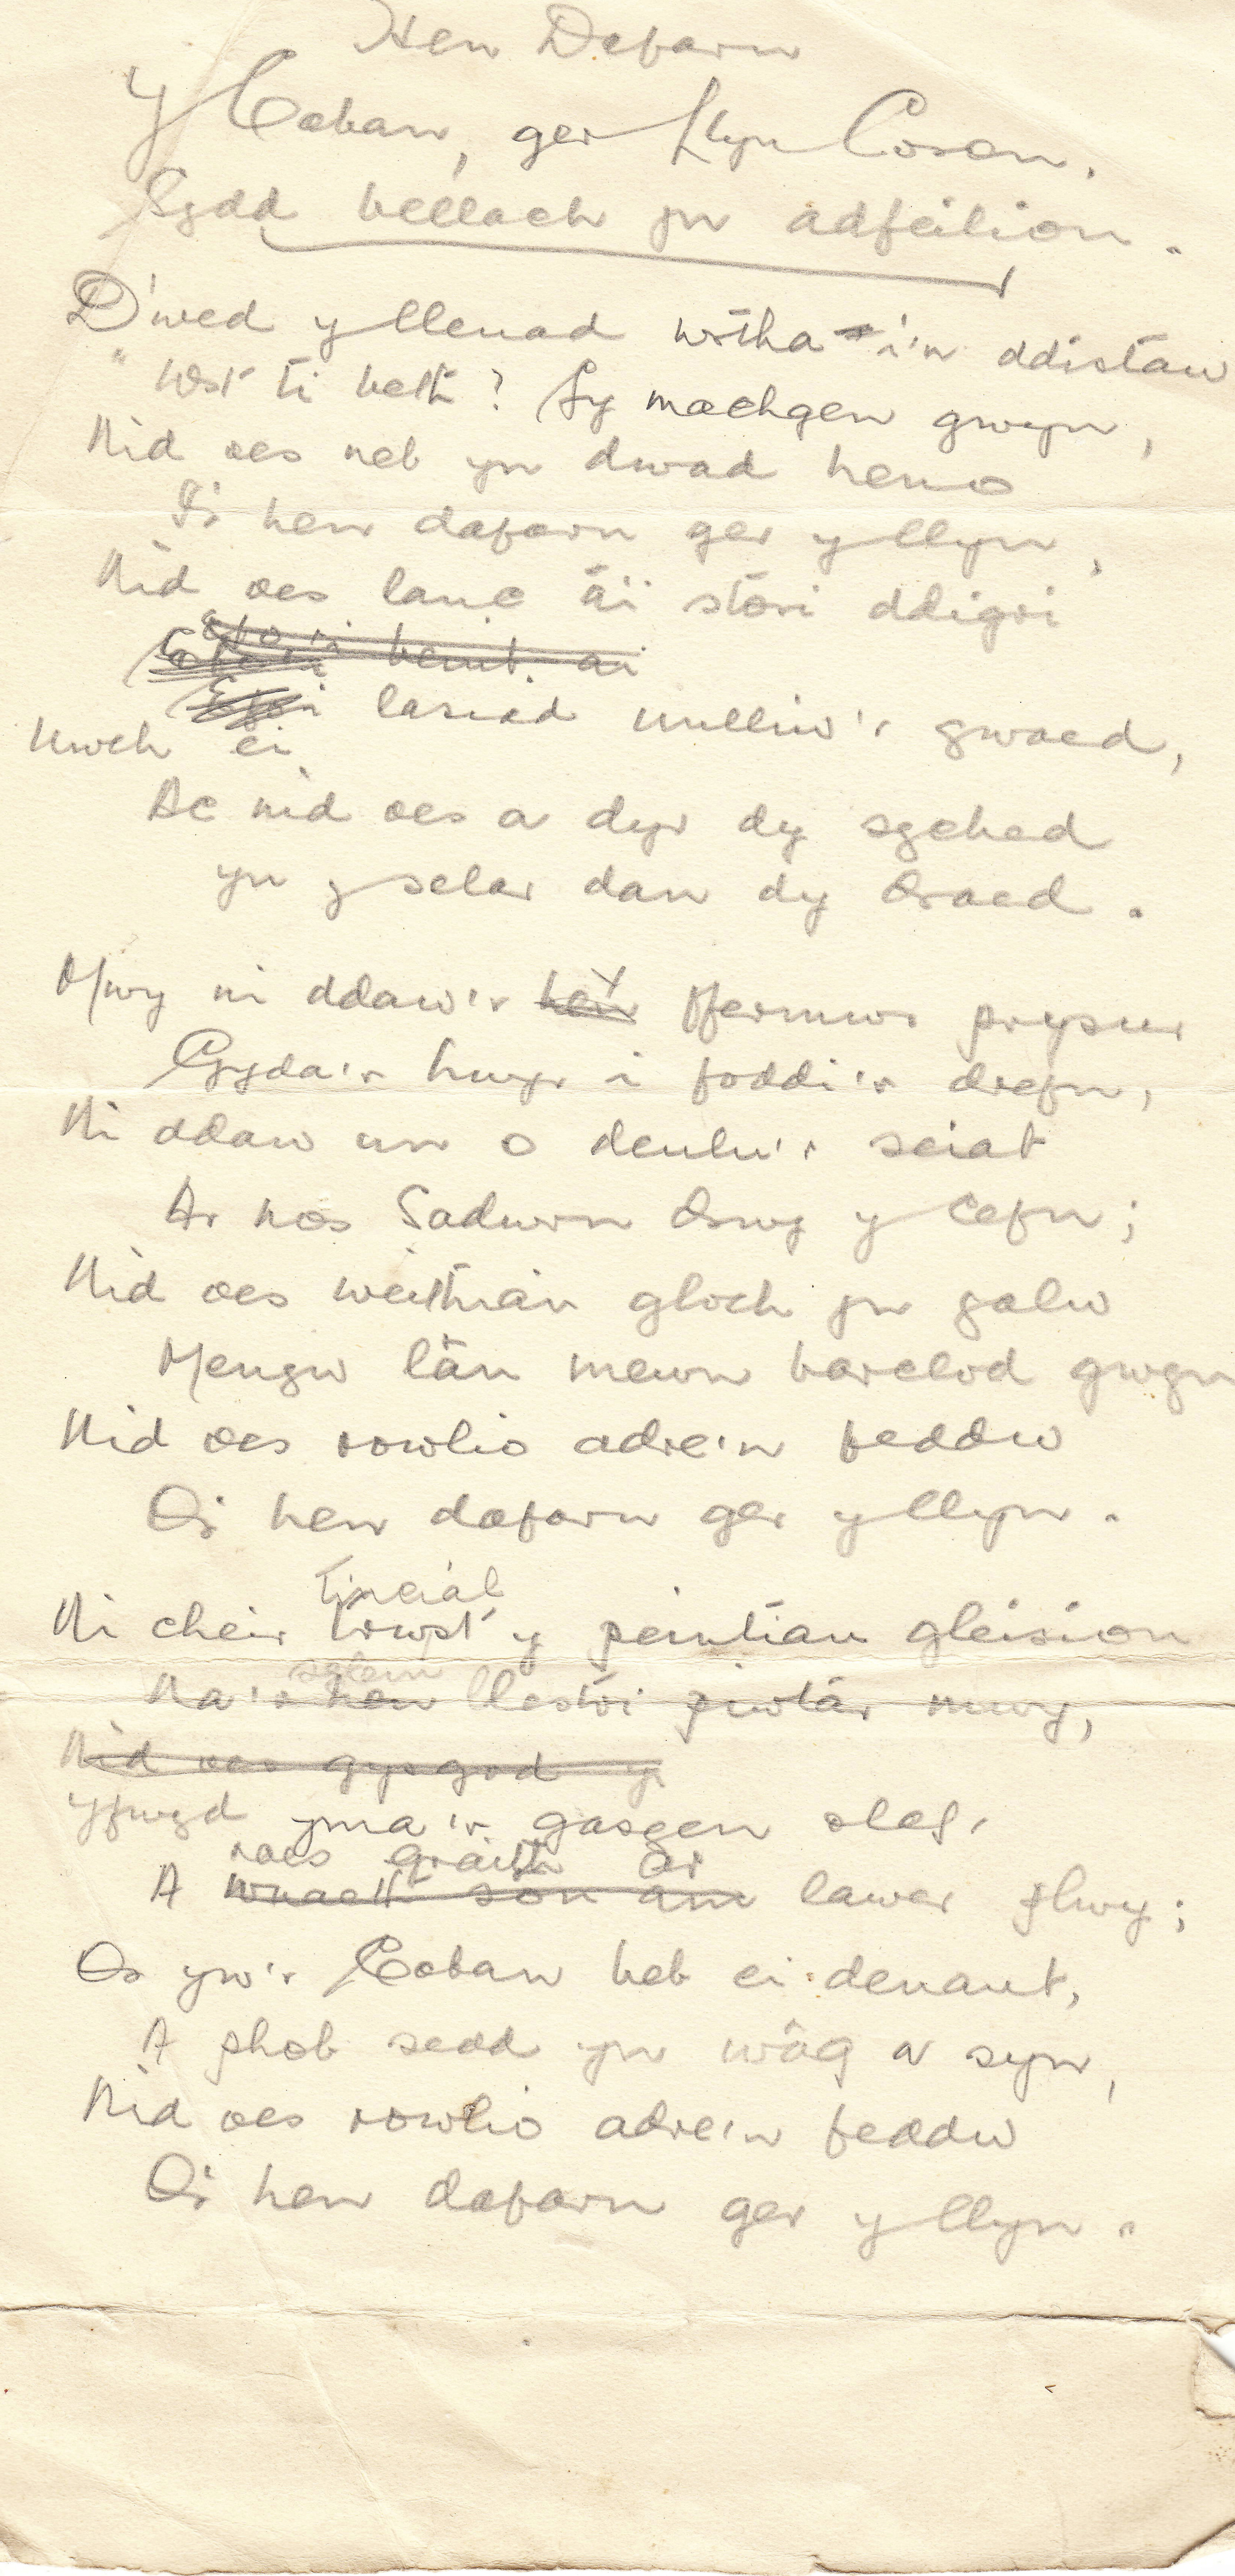 Hen Dafarn
Y Caban, ger Llyn Coron,
Sydd bellach yn adfeilion.
D'wed y lleuad wrtha i'n ddistaw
"Wst ti beth? Sy machgen gwyn,
Nid oes neb yn dwad heno
I'r hen dafarn ger y llyn,
Nid oes lanc a'i stori ddigri
Stori beint. ai
Uwch ei lasiad unlliw'r gwaed,
Ac nid oes a dyr dy syched
yn y selar dan dy draed.
Mwy ni ddaw'r hen ffermwr prysur
Gyda'r hwyr i foddi'r drefn,
Ni ddaw un o deulu'r seiat
Ar nos Sadwrn drwy y cefn;
Nid oes weithian gloch yn galw
Mengw lân mewn barclod gwyn
Nid oes rowlio adre'n feddw
O'r hen dafarn ger y llyn.
tincial
Ni cheir trwst y peintiau gleision
sglein
Na'r hen llestri piwtar mwy,
Nid oes gysgod y
Yfwyd yma'r gasgen olaf,
roes graith ar
A wnaeth sôn am lawer plwy;
Os yw'r Caban heb ei denant,
A phob sedd yn wâg a syn,
Nid oes rowlio adre'n feddw
O'r hen dafarn ger y llyn.